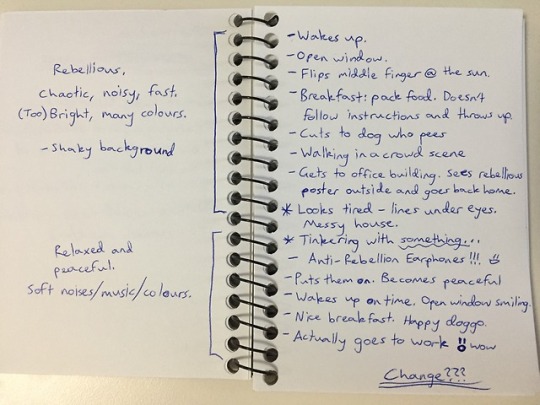 Rebellious.
Chaotic, noisy, fast.
(Too) Bright, many colours.
- Shaky background
Relaxed and
peaceful.
Soft noises/music/colours.
- Wakes up.
- Open window.
- Flips middle finger @ the sun.
- Breakfast: pack food. Doesn't
follow instructions and throws up.
- Cuts to dog who pees
- Walking in a crowd scene
- Gets to office building. Sees rebellious
poster outside and goes back home.
* Looks tired - lines under eyes.
Messy house.
* Tinkering with something...
- Anti-Rebellion Earphones!!!
- Puts them on. Becomes peaceful
- Wakes up on time. Open window smiling.
- Nice breakfast. Happy doggo.
- Actually goes to work !! wow
Change???